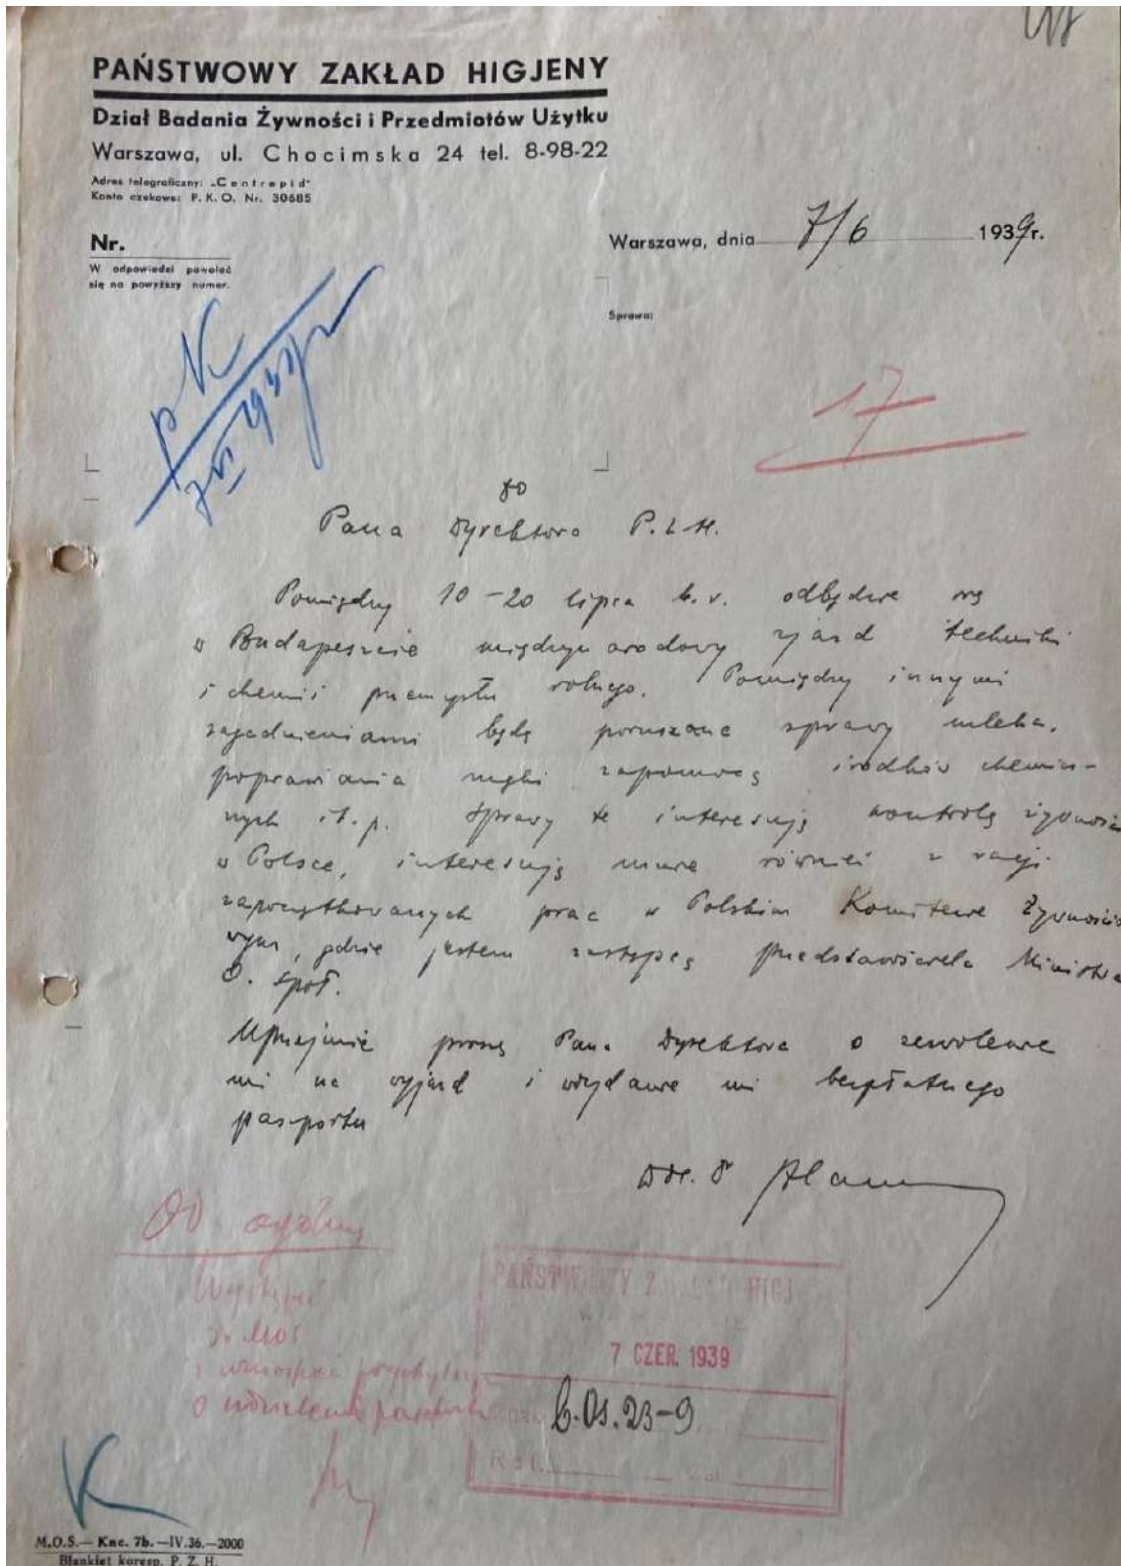 PAŃSTWOWY ZAKŁAD HIGJENY
Dział Badania Żywności i Przedmiotów Użytku
Warszawa, ul. Chocimska 24 tel. 8-98-22
Adres telegraficzny: „Centrepid"
Konto czekowe: P. K. O. Nr. 30685
Nr.
W odpowiedzi powołać
się na powyższy numer.
Warszawa, dnia 7/6 1939 r.
Sprawa:
17
do
Pana Dyrektora P.Z.H.
Pomiędzy 10-20 lipca b.r. odbędzie się
w Budapeszcie międzynarodowy zjazd techniki
i chemii przemysłu rolnego. Pomiędzy innymi
zagadnieniami będą poruszane sprawy mleka,
poprawiania mąki zapomocą środków chemicz-
nych it.p. Sprawy te interesują kontrolę żywności
w Polsce, interesują mnie również z racji
zapoczątkowanych prac w Polskim Komitecie Żywnościo
wym, gdzie jestem zastępcą przedstawiciela Ministra
O. Społ.
Uprzejmie proszę Pana Dyrektora o zezwolenie
mi na wyjazd i wydanie mi bezpłatnego
paszportu
Od ogólny
Wystąpić
z wnioskiem przychylnym
o udzielenie paszportu
PAŃSTWOWY ZAKŁAD HIGJ
7 CZER. 1939
b.Os.23-9
K
M.O.S.— Knc. 7b.—IV.36.—2000
Blankiet koresp. P. Z. H.